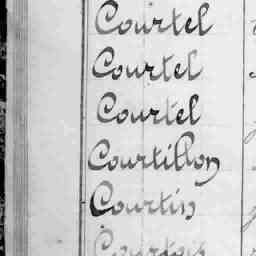 Courtel
Courtel
Courtel
Courtillon
Courtin
Courtois